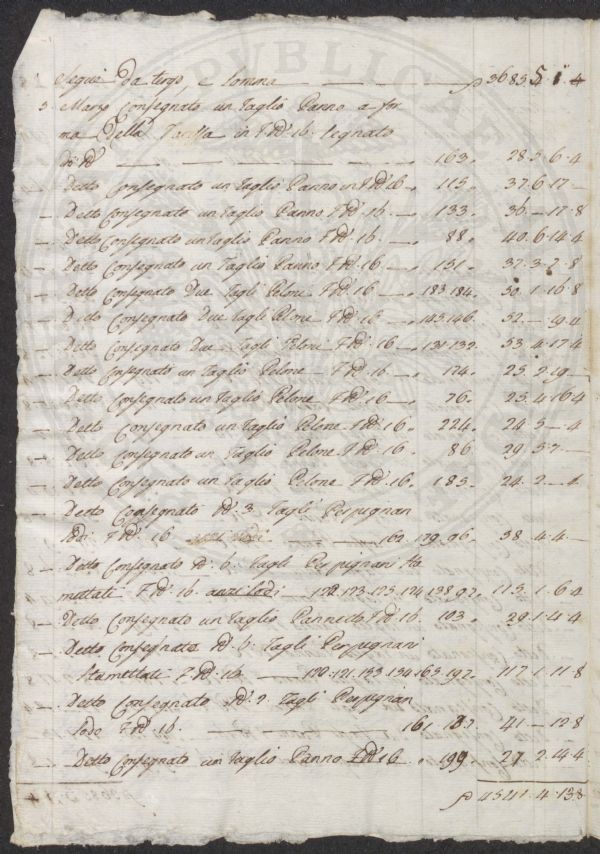 Segue da tergo, e somma — 3683.5.1.4
3 Marzo Consegnato un Taglio Panno a for
ma della Tariffa in F.do 16. segnato
di d.° — 163. 28.5.6.4
— Detto Consegnato un Taglio Panno in F.do 16 — 115. 37.6.17 —
— Detto Consegnato un Taglio Panno F.do 16. — 133. 36. — 17.8
— Detto Consegnato un Taglio Panno F.do 16. — 88. 40.6.14.4
— Detto Consegnato un Taglio Panno F.do 16. — 151. 37.3.2.8
— Detto Consegnato Due Tagli Pelone F.do 16 — 183.184. 50.1.16.8
— Detto Consegnato Due Tagli Pelone F.do 16 — 145.146. 52. — 19.4
— Detto Consegnato Due Tagli Pelone F.do 16 — 131.132. 53.4.17.4
— Detto Consegnato un Taglio Pelone F.do 16. — 174. 25.2.19 —
— Detto Consegnato un Taglio Pelone F.do 16 — 76. 23.4.16.4
— Detto Consegnato un Taglio Pelone F.do 16. 224. 24.5 — 4
— Detto Consegnato un Taglio Pelone F.do 16. 86 29.5.7 —
— Detto Consegnato un Taglio Pelone F.do 16. 185. 24.2. — 4
— Detto Consegnato N.° 3 Tagli Perpignan
Lodi F.do 16 — 162.179.96. 58.4.4 —
— Detto Consegnato N.° 6. Tagli Perpignani Sta
mettati F.do 16. anzi Lodi — 172.173.175.174.138.97. 115.1.6.4
— Detto Consegnato un Taglio Pannetto F.do 16. 103. 29.1.4.4
— Detto Consegnato N.° 6. Tagli Perpignani
Stamettati F.do 16 — 120.121.153.154.165.192. 117.1.11.8
— Detto Consegnato N.° 2. Tagli Perpignan
Lodo F.do 16. — 161.182. 41. — 12.8
— Detto Consegnato un Taglio Panno F.do 16. 199. 27.2.14.4
4541.4.13.8